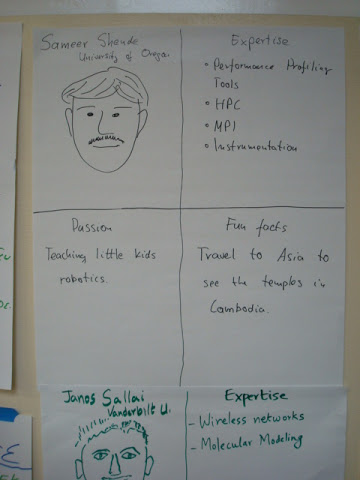 Sameer Shende
University of Oregon
Expertise
• Performance Profiling
Tools
• HPC
• MPI
• Instrumentation
Passion
Teaching little kids
robotics.
Fun facts
Travel to Asia to
see the temples in
Cambodia.
Janos Sallai
Vanderbilt U.
Expertise
- Wireless networks
- Molecular Modeling